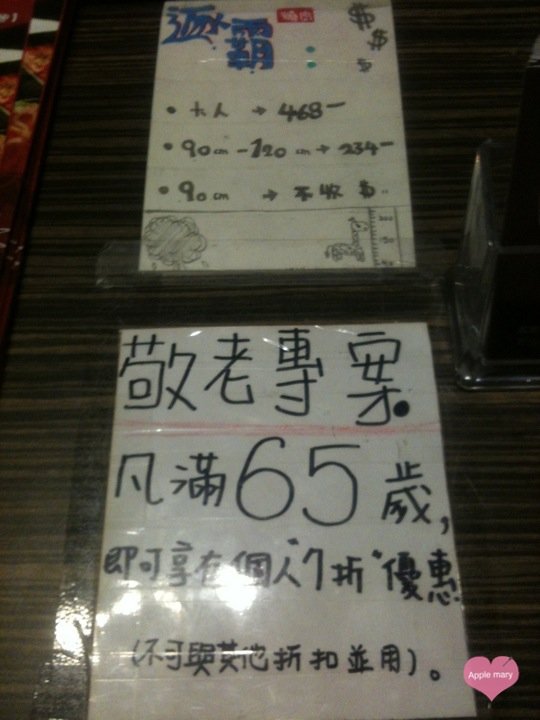 燒肉
霸
$ $ $
• 大人 → 468一
• 90cm - 120cm → 234一
• 90cm → 不收費..
敬老專案.
凡滿65歲,
即可享有個人"7折"優惠.
(不可與其他折扣並用)。
Apple mary